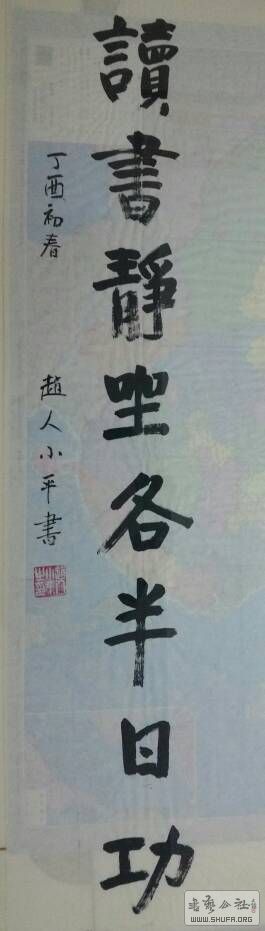 讀書靜坐各半日功
丁酉初春 趙人小平書
書藝公社
WWW.SHUFA.ORG